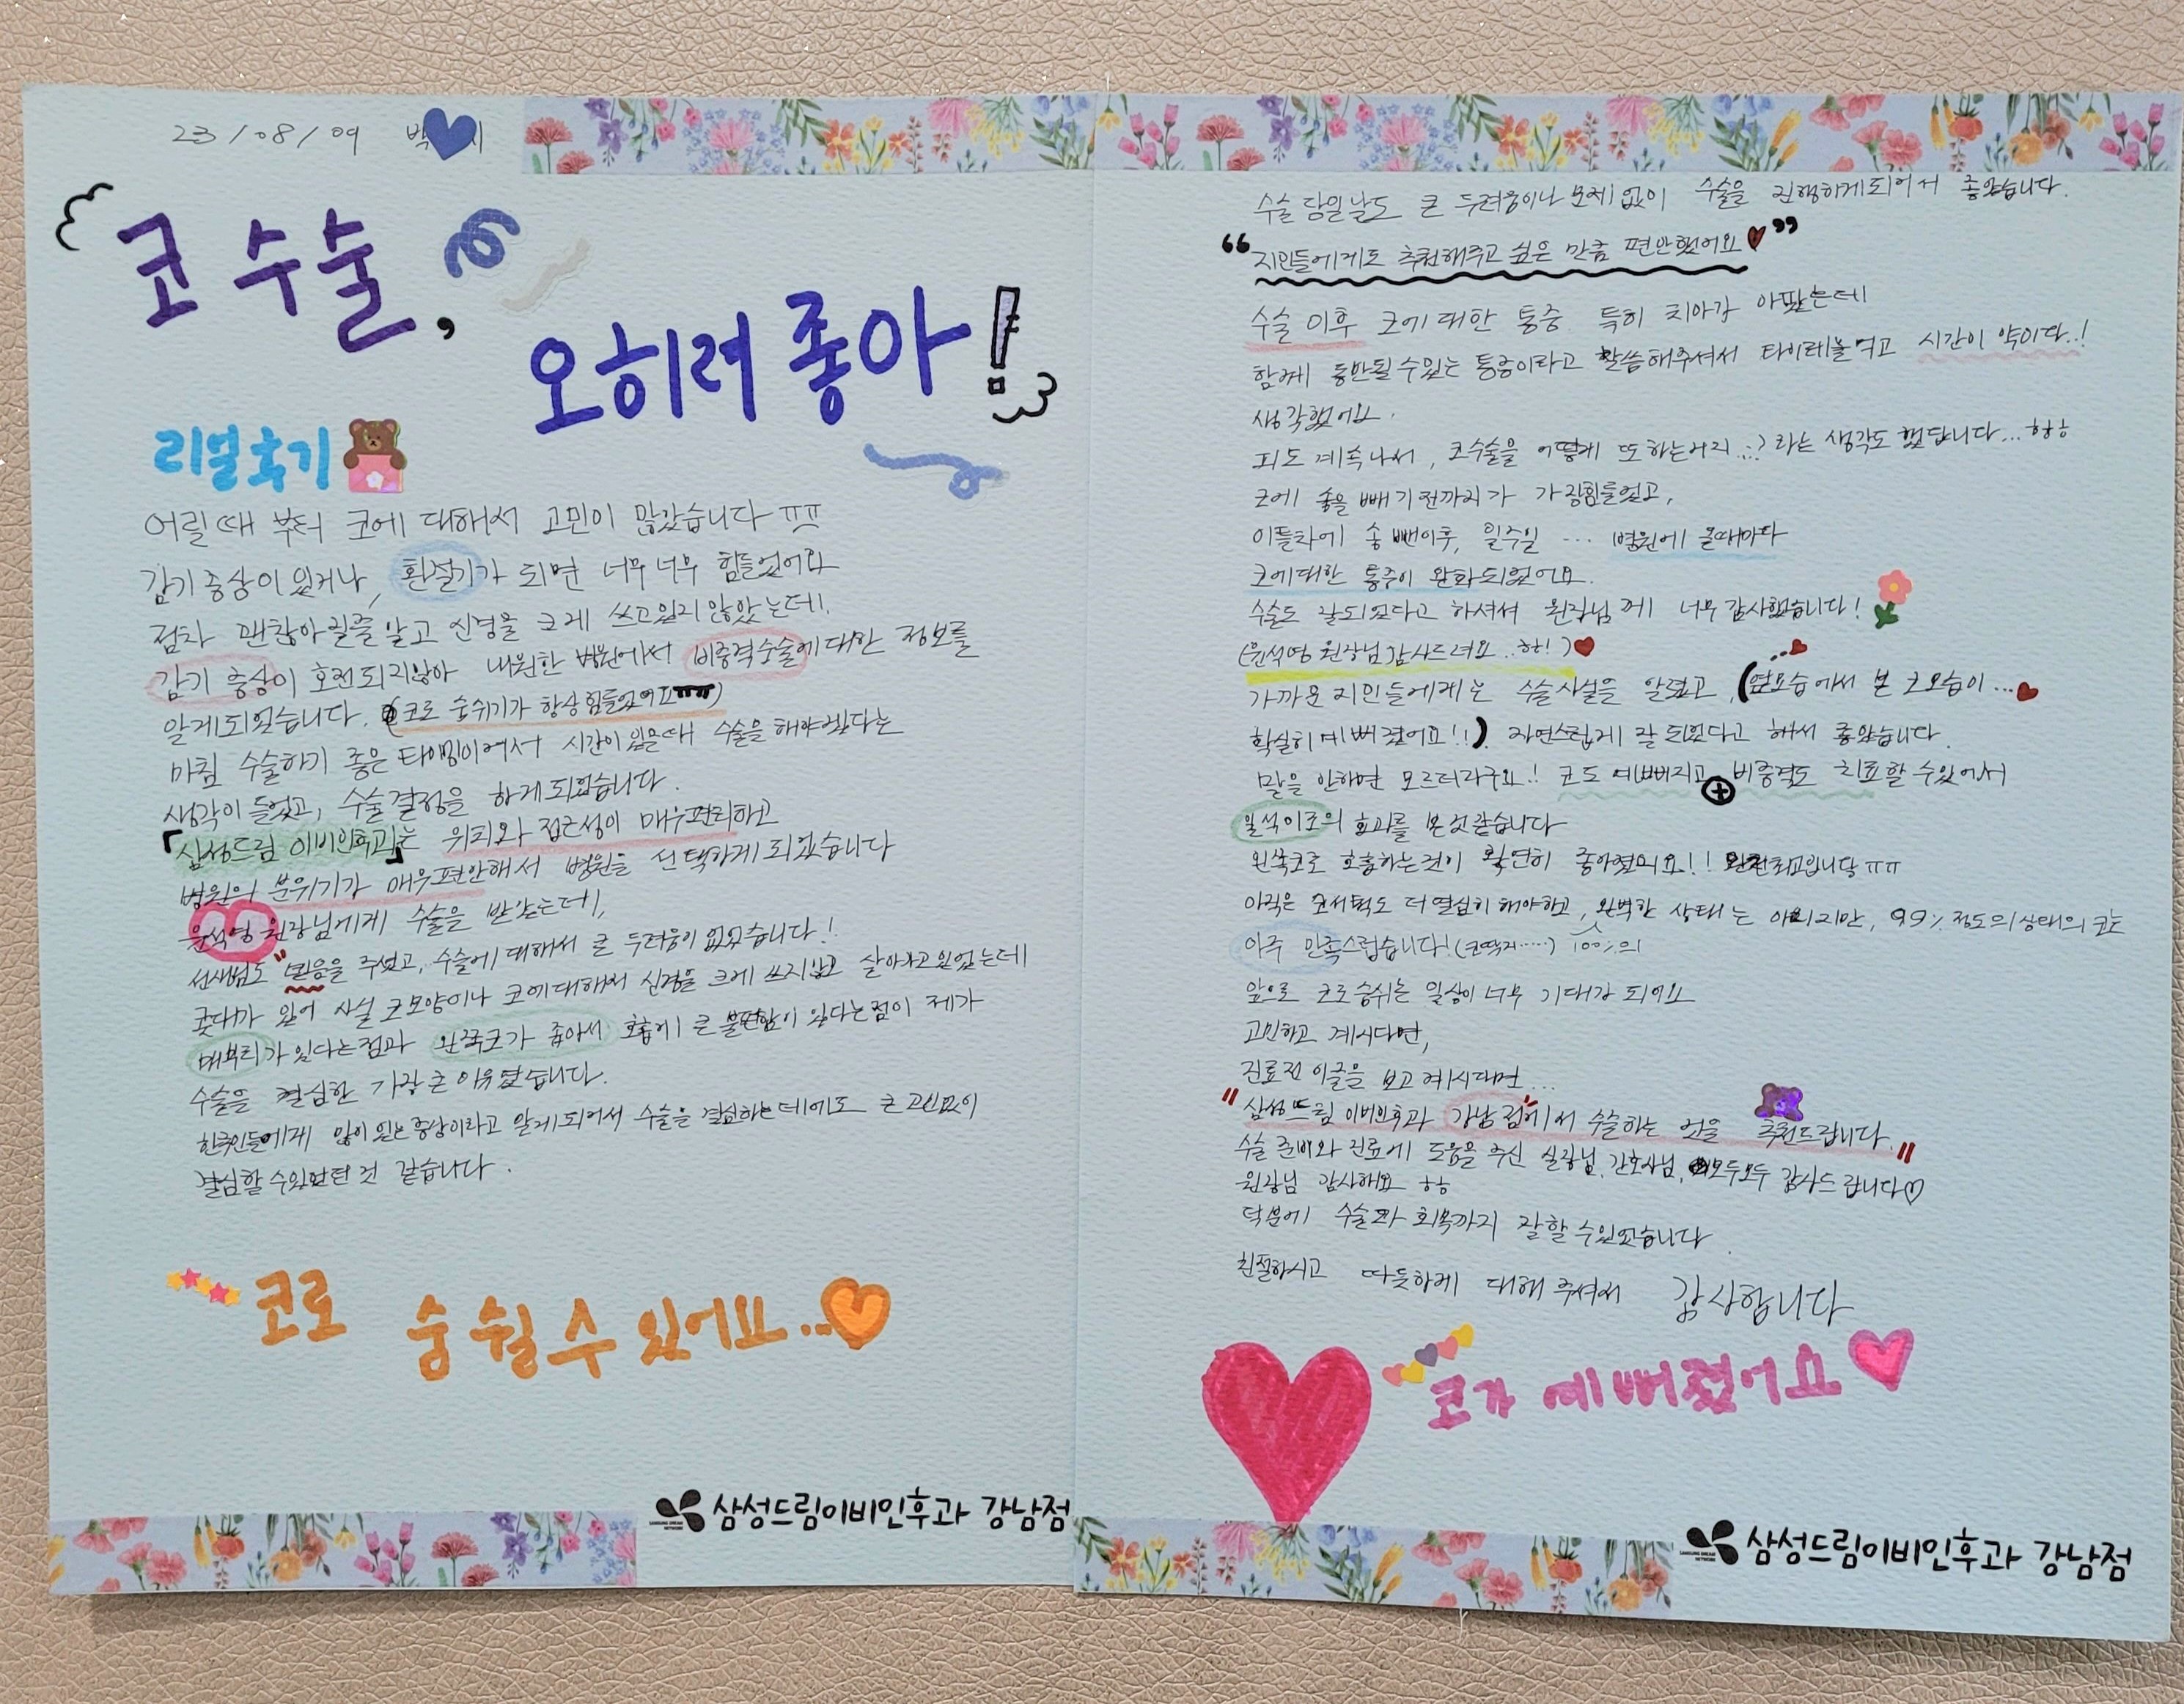 23/08/09 박 시
코 수술,
오히려 좋아!
리얼후기
어릴때 부터 코에 대해서 고민이 많았습니다 ㅠㅠ
감기 증상이 있거나, 환절기가 되면 너무 너무 힘들었어요
점차 괜찮아질줄 알고 신경을 크게 쓰고있지 않았는데,
감기 증상이 호전되지않아 내원한 병원에서 비중격수술에 대한 정보를
알게되었습니다. (코로 숨쉬기가 항상 힘들었어요ㅠㅠ)
마침 수술하기 좋은 타이밍이여서 시간이 있을때 수술을 해야겠다는
생각이 들었고, 수술결정을 하게되었습니다.
「삼성드림 이비인후과」는 위치와 접근성이 매우편리하고
병원의 분위기가 매우편안해서 병원을 선택하게 되었습니다
윤석영 원장님에게 수술을 받았는데,
선생님도 "믿음을 주셨고, 수술에 대해서 큰 두려움이 없었습니다!
콧대가 있어 사실 코모양이나 코에대해서 신경을 크게 쓰지않고 살아가고있었는데
매부리가 있다는점과 왼쪽코가 좁아서 호흡에 큰 불편함이 있다는점이 제가
수술을 결심한 가장 큰 이유였습니다.
한국인들에게 많이 있는증상이라고 알게되어서 수술을 결심하는데에도 큰 고민없이
결심할 수있었던 것 같습니다.
코로 숨 쉴 수 있어요...
삼성드림이비인후과 강남점
수술 당일날도 큰 두려움이나 문제없이 수술을 진행하게되어서 좋았습니다.
"지인들에게도 추천해주고 싶은 만큼 편안했어요"
수술 이후 코에 대한 통증 특히 치아가 아팠는데
함께 동반될수있는 통증이라고 말씀해주셔서 타이레놀먹고 시간이 약이다..!
생각했어요.
피도 계속나서, 코수술을 어떻게 또하는거지..? 라는 생각도 했답니다...ㅎㅎ
코에 솜을 빼기전까지가 가장힘들었고,
이틀차에 솜 뺀이후, 일주일 ... 병원에 올때마다
코에대한 통증이 완화되었어요.
수술도 잘되었다고 하셔서 원장님 께 너무 감사했습니다!
(윤석영 원장님 감사드려요..하!)
가까운 지인들에게는 수술사실을 알렸고, (옆모습에서 본 코모습이...
확실히 예뻐졌어요!!) 자연스럽게 잘 되었다고 해서 좋았습니다.
말을 안하면 모르더라구요.! 코도 예뻐지고 + 비중격도 치료할 수있어서
일석이조의 효과를 본것같습니다
왼쪽코로 호흡하는것이 확연히 좋아졌어요!! 완전최고입니당ㅠㅠ
아직은 코세척도 더 열심히 해야하고, 완벽한 상태는 아니지만, 99% 정도의상태의 코는
아주 만족스럽습니다!(코딱지.....) 100%의
앞으로 코로숨쉬는 일상이 너무 기대가 되어요
고민하고 계시다면,
진료전 이글을 보고계시다면...
"삼성드림 이비인후과 강남점에서 수술하는 것을 추천드립니다."
수술 준비와 진료에 도움을 주신 실장님, 간호사님, 모두모두 감사드립니다♡
원장님 감사해요 ㅎㅎ
덕분에 수술과 회복까지 잘할 수있었습니다.
친절하시고 따듯하게 대해 주셔서 감사합니다
코가 예뻐졌어요
삼성드림이비인후과 강남점